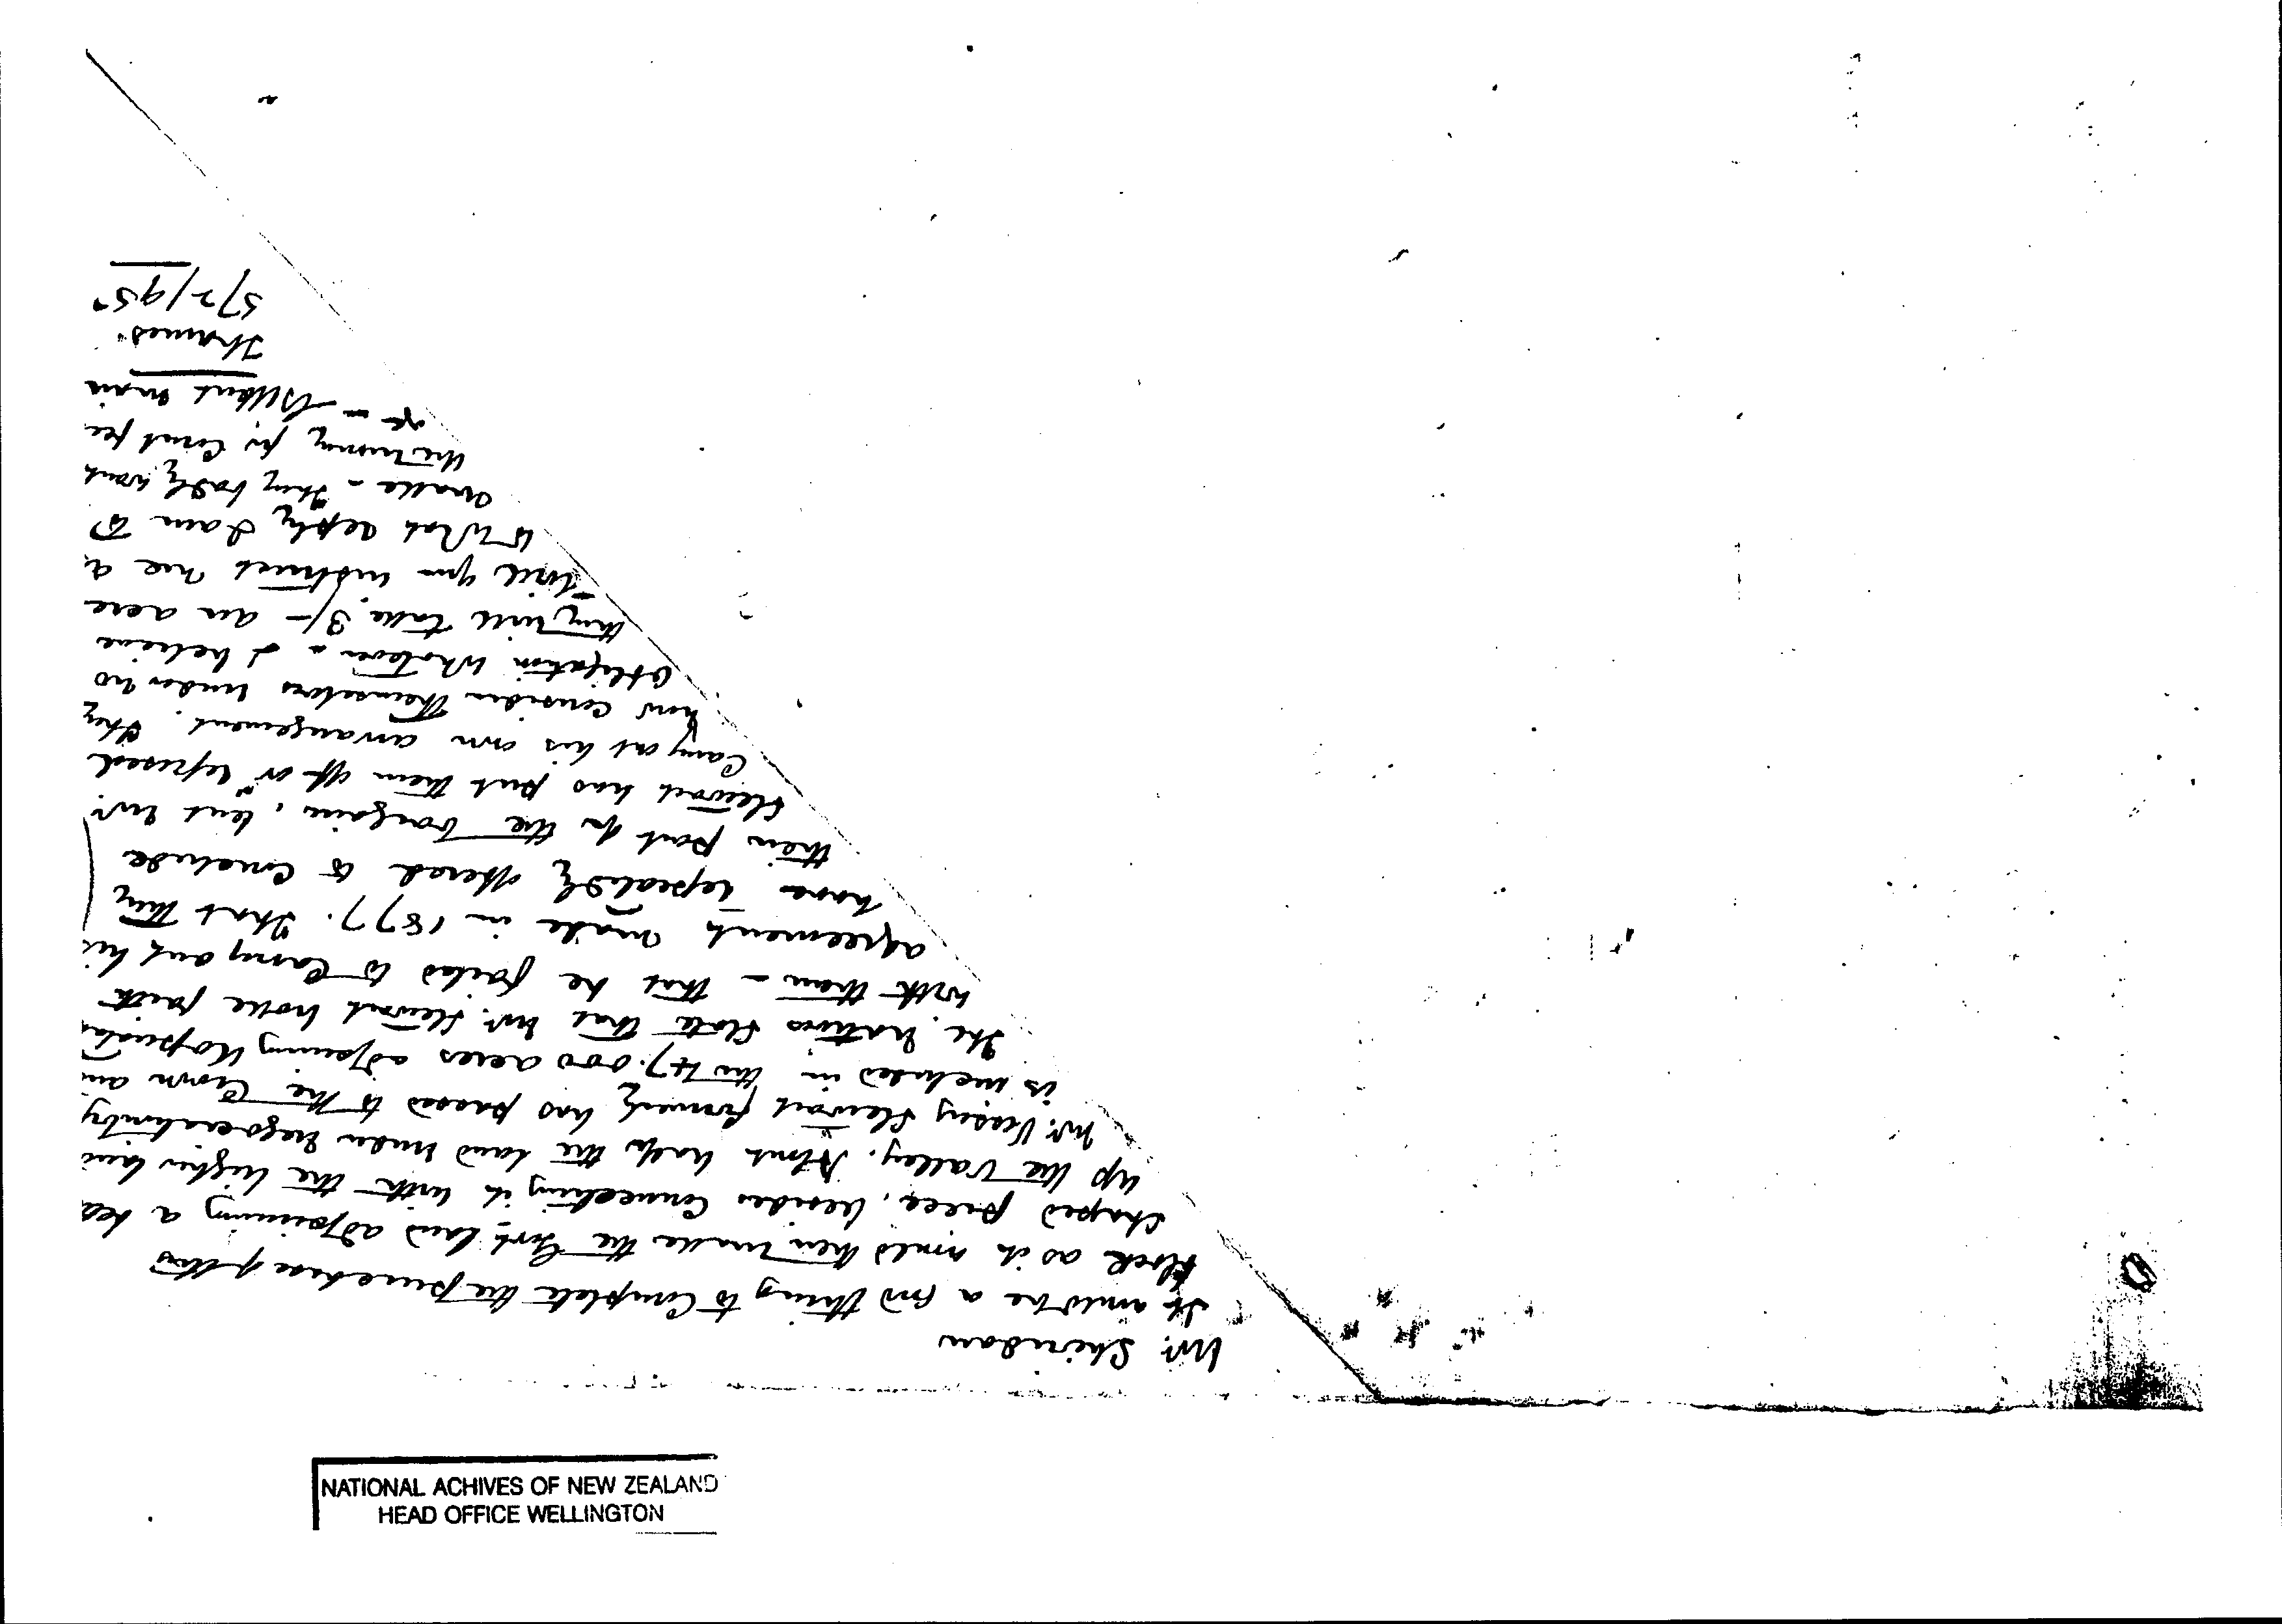 Mr. Sheridan
It would be a good thing to complete the purchase of this
block as it would then make the Govt. land adjoining a
shaped piece, besides connecting it with the higher land
up the Valley. About half the land under negotiation by
Mr. Vesey Stewart formerly has passed to the Crown and
is included in the 47.000 acres adjoining
The natives state that Mr. Stewart broke faith
with them - that he failed to carry out his
agreement made in 1877. That they
have repeatedly offered to conclude
their part of the bargain, but Mr.
Stewart has put them off or refused
carry out his own arrangement. They
now consider themselves under no
obligation whatever - I believe
they will take 3/- an acre
Will you instruct me a
to what reply I am to
make - They badly want
the money for Court fee
&c - Gilbert Mair
Thames
5/2/95
NATIONAL ACHIVES OF NEW ZEALAND
HEAD OFFICE WELLINGTON